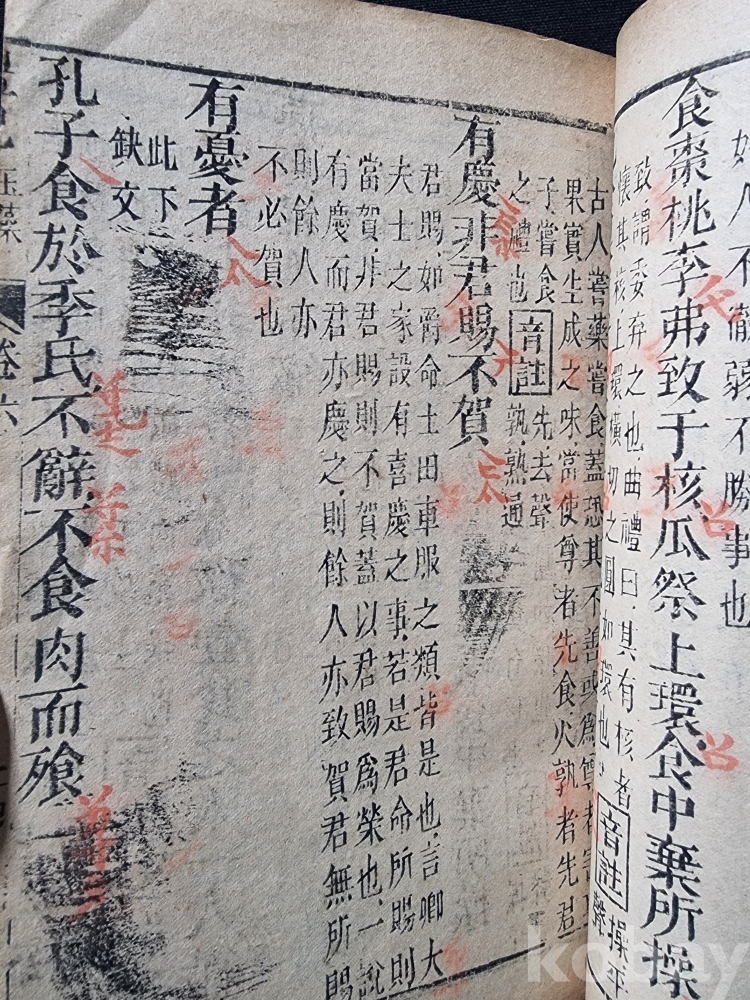 人不徹弱不勝事也
食棗桃李弗致于核瓜祭上環食中棄所操
致謂委弃之也曲禮曰其有核者
懷其核上環橫切之圓如環也
音註
操平
聲
古人嘗藥嘗食蓋恐其不善或爲
果實生成之味當使尊者先食火孰者先君
子嘗食
之禮也
音註
先去聲
孰熟通
有慶非君賜不賀
君賜如爵命土田車服之類皆是也言卿大
夫士之家設有喜慶之事若是君命所賜則
當賀非君賜則不賀蓋以君賜爲榮也一說
有慶而君亦慶之則餘人亦致賀君無所賜
則餘人亦
不必賀也
有憂者
此下
缺文
孔子食於季氏不辭不食肉而飧
卷六
kobay